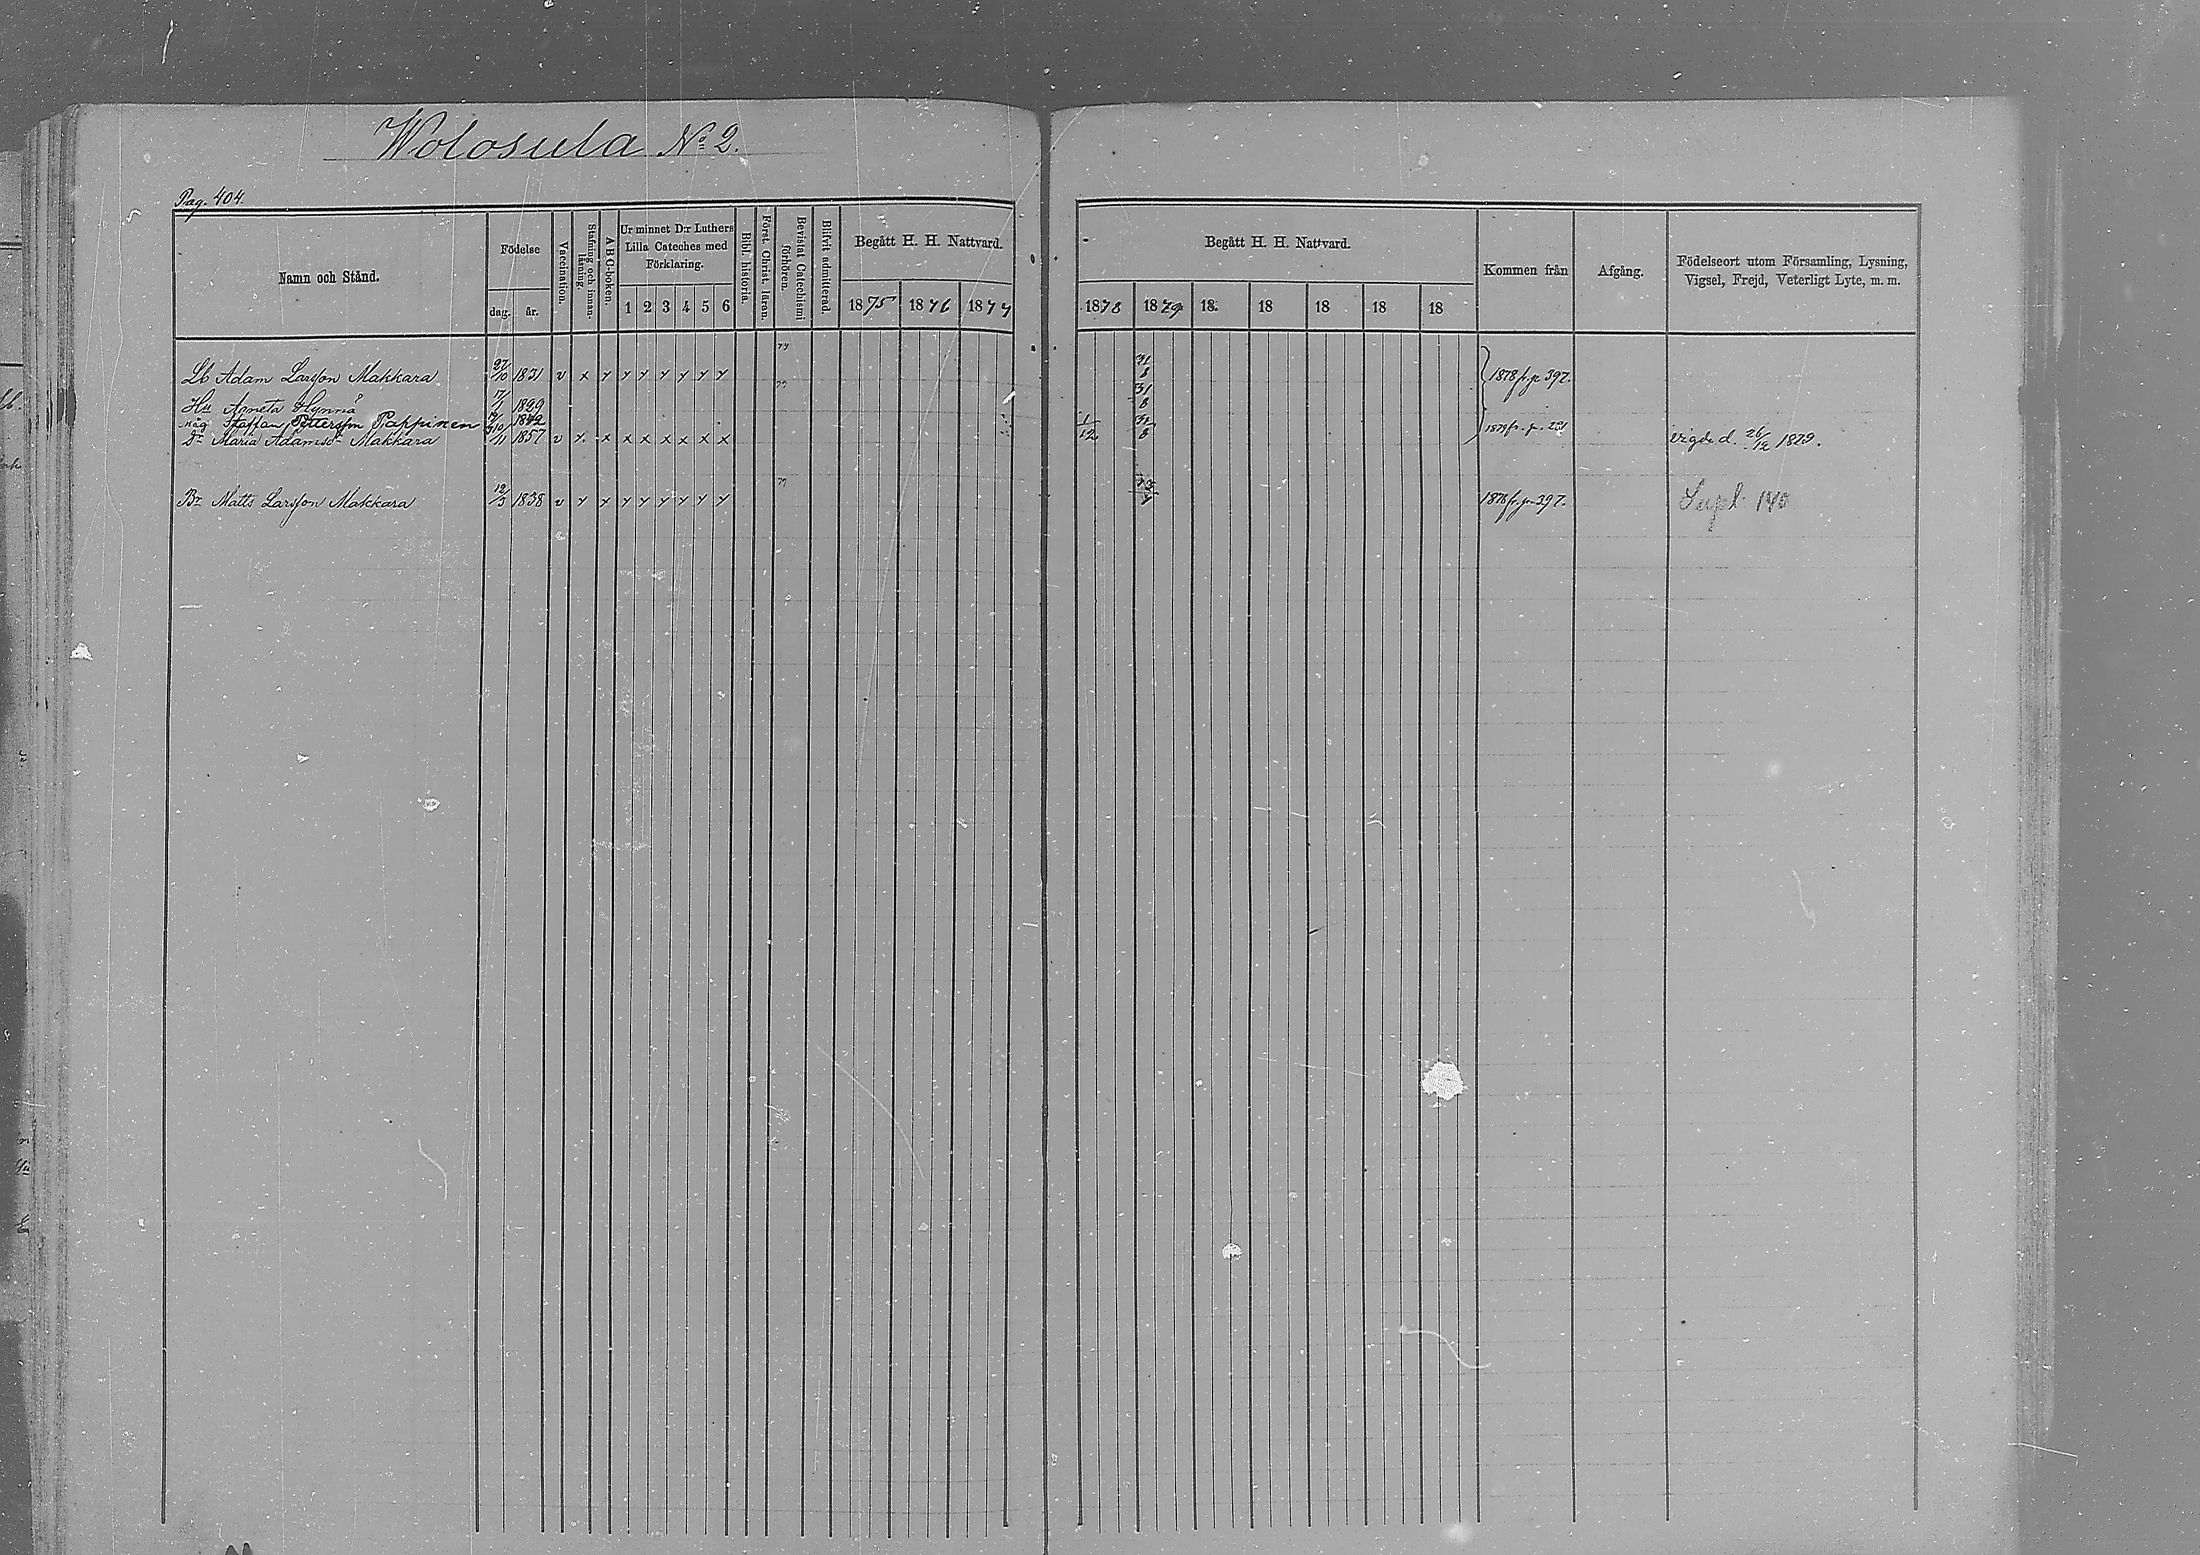 Wolosula No 2.
Pag. 404.
Namn och Stånd.
Födelse
dag.
år.
Vaccination.
Stafning och innan-
läsning.
ABC-boken.
Ur minnet D:r Luthers
Lilla Cateches med
Förklaring.
1 2 3 4 5 6
Bibl. historia.
Först. Christ. läran.
Bevistat Catechismi
förhören.
Blifvit admitterad.
Begått H. H. Nattvard.
1875 1876 1877
Begått H. H. Nattvard.
1878 1879 18 18 18 18 18
Kommen från
Afgång.
Födelseort utom Församling, Lysning,
Vigsel, Frejd, Veterligt Lyte, m. m.
Lb Adam Larsson Makkara 27/10 1831 v x y y y y y y y 77 31/8 1878 fr. p. 397.
Hu Agneta Hynnä 17/1 1829 77 31/8
Måg Staffan Pettersson Pappinen 1879 fr. p. 231
Dr Maria Adamsdr Makkara /11 1857 v x x x x x x x x 1/12 31/8 vigde d. 26/12 1879.
Br Matts Larsson Makkara 12/3 1838 v y y y y y y y y 77 1878 fr. p. 397. Supl. 140